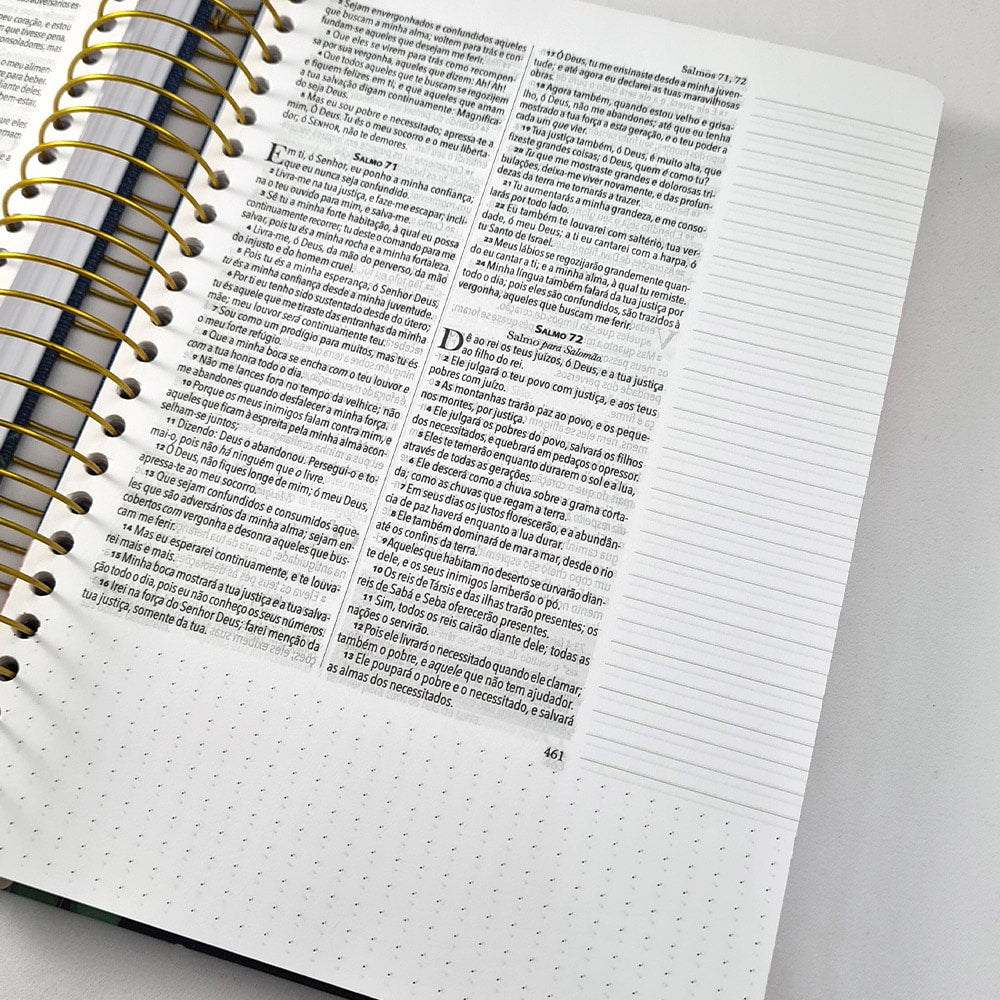 adversários es-
meu coração, e estou
que tivesse pena,
consoladores, mas
o meu alimen-
para beber.
diante deles
bem-estar,
tremam
e a
Salmos 71; 72
2 Sejam envergonhados e confundidos aqueles
que buscam a minha alma; voltem para trás e con-
fundam-se aqueles que desejam me ferir.
3 Que eles se virem para trás como recompen-
sa por sua vergonha, aqueles que dizem: Ah! Ah!
4 Que todos aqueles que te buscam se regozijem
e fiquem felizes em ti, e que aqueles que amam
a tua salvação digam continuamente: Magnifica-
do seja Deus.
5 Mas eu sou pobre e necessitado; apressa-te a
mim, Ó Deus. Tu és o meu socorro e o meu liberta-
dor, ó SENHOR, não te demores.
SALMO 71
Em ti, ó Senhor, eu ponho a minha confiança;
que eu nunca seja confundido.
2 Livra-me na tua justiça, e faze-me escapar; incli-
na o teu ouvido para mim, e salva-me.
3 Sê tu a minha forte habitação, à qual eu possa
continuamente recorrer; tu deste o comando para me
salvar, pois tu és a minha rocha e a minha fortaleza.
4 Livra-me, ó Deus, da mão do perverso, da mão
do injusto e do homem cruel.
5 Pois tu és a minha esperança, ó Senhor Deus;
tu és a minha confiança desde a minha juventude.
6 Por ti eu tenho sido sustentado desde do útero;
tu és aquele que me tiraste das entranhas da minha
mãe; meu louvor será continuamente teu.
7 Sou como um prodígio para muitos, mas tu és
o meu forte refúgio.
8 Que a minha boca se encha com o teu louvor e
com a tua honra todo o dia.
9 Não me lances fora no tempo da velhice; não
me abandones quando desfalecer a minha força.
10 Porque os meus inimigos falam contra mim, e
aqueles que ficam à espreita pela minha alma acon-
selham-se juntos;
11 Dizendo: Deus o abandonou. Persegui-o e to-
mai-o, pois não há ninguém que o livre.
12 Ó Deus, não fiques longe de mim; ó meu Deus,
apressa-te ao meu socorro.
13 Que sejam confundidos e consumidos aque-
les que são adversários da minha alma; sejam en-
cobertos com vergonha e desonra aqueles que bus-
cam me ferir.
14 Mas eu esperarei continuamente, e te louva-
rei mais e mais.
15 Minha boca mostrará a tua justiça e a tua salva-
ção todo o dia, pois eu não conheço os seus números
16 Irei na força do Senhor Deus; farei menção da
tua justiça, somente da tua.
17 Ó Deus, tu me ensinaste desde a minha juven-
tude; e até agora eu declarei as tuas maravilhosas
obras.
18 Agora também, quando estou velho e grisa-
lho, ó Deus, não me abandones; até que eu tenha
mostrado a tua força a esta geração, e o teu poder a
cada um que vier.
19 Tua justiça também, ó Deus, é muito alta, que
fizeste grandes coisas; ó Deus, quem é como tu?
20 Tu que me mostraste grandes e dolorosas tri-
bulações, deixa-me viver novamente, e das profun-
dezas da terra me tornarás a trazer.
21 Tu aumentarás a minha grandeza, e me conso-
larás por todo lado.
22 Eu também te louvarei com saltério, tua ver-
dade, ó meu Deus; a ti eu cantarei com a harpa, ó
tu Santo de Israel.
23 Meus lábios se regozijarão grandemente quan-
do eu cantar a ti, e a minha alma, à qual tu remiste.
24 Minha língua também falará da tua justiça por
todo o dia; pois eles são confundidos, são trazidos à
vergonha, aqueles que buscam me ferir.
SALMO 72
Salmo para Salomão.
Dê ao rei os teus juízos, ó Deus, e a tua justiça
ao filho do rei.
2 Ele julgará o teu povo com justiça, e aos teus
pobres com juízo.
3 As montanhas trarão paz ao povo, e os peque-
nos montes, por justiça.
4 Ele julgará os pobres do povo, salvará os filhos
dos necessitados, e quebrará em pedaços o opressor.
5 Eles te temerão enquanto durarem o sol e a lua,
através de todas as gerações.
6 Ele descerá como a chuva sobre a grama corta-
da; como as chuvas que regam a terra.
7 Em seus dias os justos florescerão, e a abundân-
cia de paz haverá enquanto a lua durar.
8 Ele também dominará de mar a mar, desde o rio
até os confins da terra.
9 Aqueles que habitam no deserto se curvarão dian-
te dele, e os seus inimigos lamberão o pó.
10 Os reis de Társis e das ilhas trarão presentes; os
reis de Sabá e Seba oferecerão presentes.
11 Sim, todos os reis cairão diante dele; todas as
nações o servirão.
12 Pois ele livrará o necessitado quando ele clamar;
também o pobre, e aquele que não tem ajudador.
13 Ele poupará o pobre e o necessitado, e salvará
as almas dos necessitados.
461